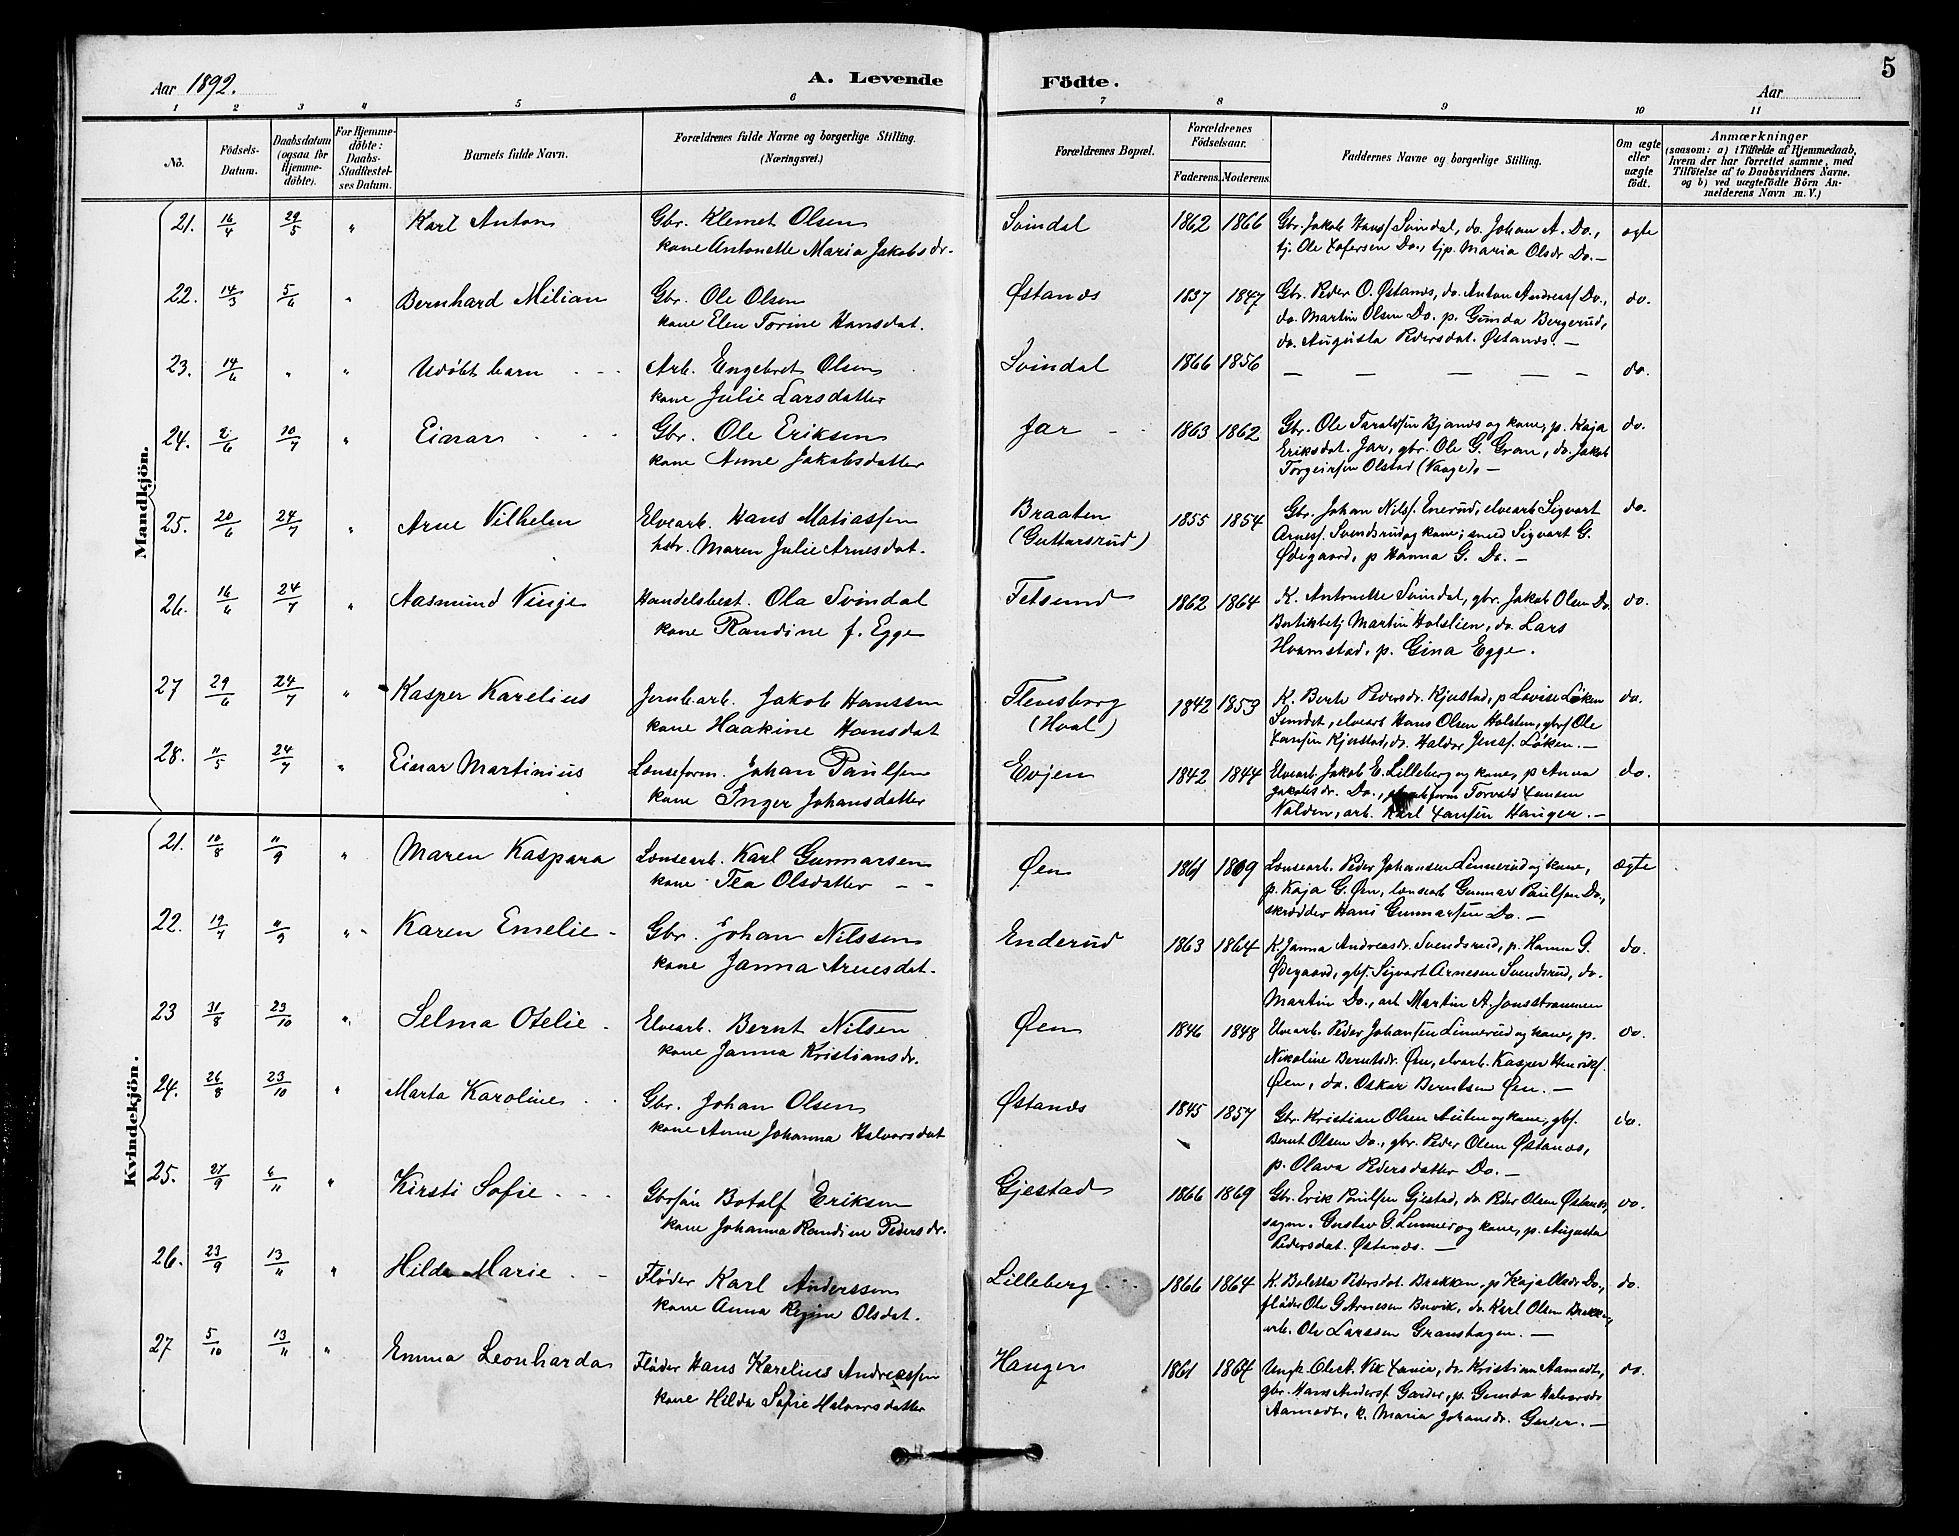 Aar 1892.
A. Levende
Födte.
Aar
5
1 2 3 4 5 6 7 8 9 10 11
No.
Födsels-Datum.
Daabsdatum (ogsaa for Hjemme-döbte).
For Hjemme-döbte: Daabs-Stadfestel-ses Datum.
Barnets fulde Navn.
Forældrenes fulde Navne og borgerlige Stilling. (Næringsvei.)
Forældrenes Bopæl.
Forældrenes Födselsaar.
Faderens. Moderens.
Faddernes Navne og borgerlige Stilling.
Om ægte eller uægte födt.
Anmærkninger
(saasom: a) i Tilfælde af Hjemmedaab, hvem der har forrettet samme, med Tilföielse af to Daabsvidners Navne, og b) ved uægtefödte Börn Anmelderens Navn m. V.)
Mandkjön.
21. 16/4 29/5 " Karl Anton Gbr. Klemet Olsen Svindal 1862 1866 Gbr. Jakob Hansf Svindal, do. Johan A. Do., ægte
kone Antonette Maria Jakobsdr. tj. Ole Do., tjp. Maria Olsdr Do. —
22. 14/3 5/6 " Bernhard Milian Gbr. Ole Olsen Østands 1837 1847 Gbr. Peder O. Østands, do. Anton Andreasf Do., do.
kone Elen Torine Hansdat. do. Martin Olsen Do. p. Gunda Bergerud,
do. Augusta Pedersdat. Østands. —
23. 14/6 " " Udøbt barn Arb. Engebret Olsen Svindal 1866 1856 — — — — — do.
kone Julie Larsdatter
24. 2/6 10/7 " Einar Gbr. Ole Eriksen Jar 1863 1862 Gbr. Ole Taraldsen Bjands og kone, p. Kaja do.
kone Anne Jakobsdatter Eriksdat. Jar, gbr. Ole G. Gran, do. Jakob
Torgeirsen Olstad (Vaage). —
25. 20/6 24/7 " Arne Vilhelm Elvearb. Hans Matiassen Braaten 1855 1854 Gbr. Johan Nilsf Enerud, elvearb Sigvart do.
hstr. Maren Julie Arnesdat. (Guttorsrud) Arnesf. Svendsrud og kone; smed Sigvart G.
Ødegaard, p Hanna G. Do. —
26. 16/6 24/7 " Aasmund Vinje Handelsbest. Ola Svindal Fetsund 1862 1864 K. Antonette Svindal, gbr. Jakob Olsen Do do.
kone Randine f. Egge Butikbetj Martin Holslien, do. Lars
Hvamstad, p. Gina Egge.
27 29/6 24/7 " Kasper Karelius Jernb.arb. Jakob Hanssen Flensborg 1842 1853 K. Berte Pedersdr. Kjustad, p Lovise Løken do.
kone Haakine Hansdat (Hval) Sundet, elvearb Hans Olsen Holsten, gbr Ole
Kjustad, do. Haldor Jensf. Løken. —
28. 11/5 24/7 " Einar Martinius Lenseform. Johan Paulsen Evjen 1842 1844 Elvearb. Jakob E. Lilleberg og kone, p Anna do.
kone Inger Johansdatter Jakobsdr. Do., Torvald
Valden, arb. Karl Hauger. —
Kvindekjön.
21. 10/8 11/9 " Maren Kaspara Lensearb. Karl Gunnarsen Øen 1861 1869 Lensearb. Peder Johansen Linnerud og kone, ægte
kone Tea Olsdatter p. Kaja G. Øen, lensearb Gunnar Paulsen Do.,
skrædder Hans Gunnarsen Do. —
22. 19/7 11/9 " Karen Emelie Gbr. Johan Nilssen Enderud 1863 1864 K. Janna Andreasdr. Svendsrud, p. Hanna G. do.
kone Janna Arnesdat. Ødegaard, gbs. Sigvart Arnesen Svendsrud, do.
Martin Do., arb Martin A.
23 31/8 23/10 " Selma Otelie Elvearb. Bernt Nilsen Øen 1846 1848 Elvearb. Peder Johansen Linnerud og kone, p. do.
kone Janna Kristiansdr. Nikoline Berntsdr. Øen, elvarb. Kasper Henriksf.
Øen, do. Oskar Berntsen Øen. —
24. 26/8 23/10 " Marta Karoline Gbr. Johan Olsen Østands 1845 1857 Gbr. Kristian Olsen Auten og kone, gbs. do.
kone Anne Johanna Halvorsdat Bernt Olsen Do., gbr. Peder Olsen Østands,
p. Olava Pedersdatter Do. —
25. 27/9 6/11 " Kirsti Sofie Gbrsøn Botolf Eriksen Gjestad 1866 1869 Gbr. Erik Poulsen Gjestad, do Peder Olsen Østands, do.
kone Johanna Randine Pedersdr. sagm. Gustav G. Linner og kone, p. Augusta
Pedersdat. Østands. —
26. 23/9 13/11 " Hilda Marie Fløder Karl Anderssen Lilleberg 1866 1864 K. Boletta Pedersdat. Brakken, p Kaja Olsdr Do., do.
kone Anna Regine Olsdat. fløder Ole G Arnesen Buvik, do Karl Olsen
arb. Ole Larssen Granshagen. —
27 5/10 13/11 " Emma Leonharda Fløder Hans Karelius Andreassen Hauger 1861 1864 Ungk. Ole A. do. Kristian Aamodt, do.
kone Hilda Sofie Halvorsdatter gbr. Hans Andersf Garder, p. Gunda Halvorsdr
Aamodt, k. Maria Johansdr. Garder. —